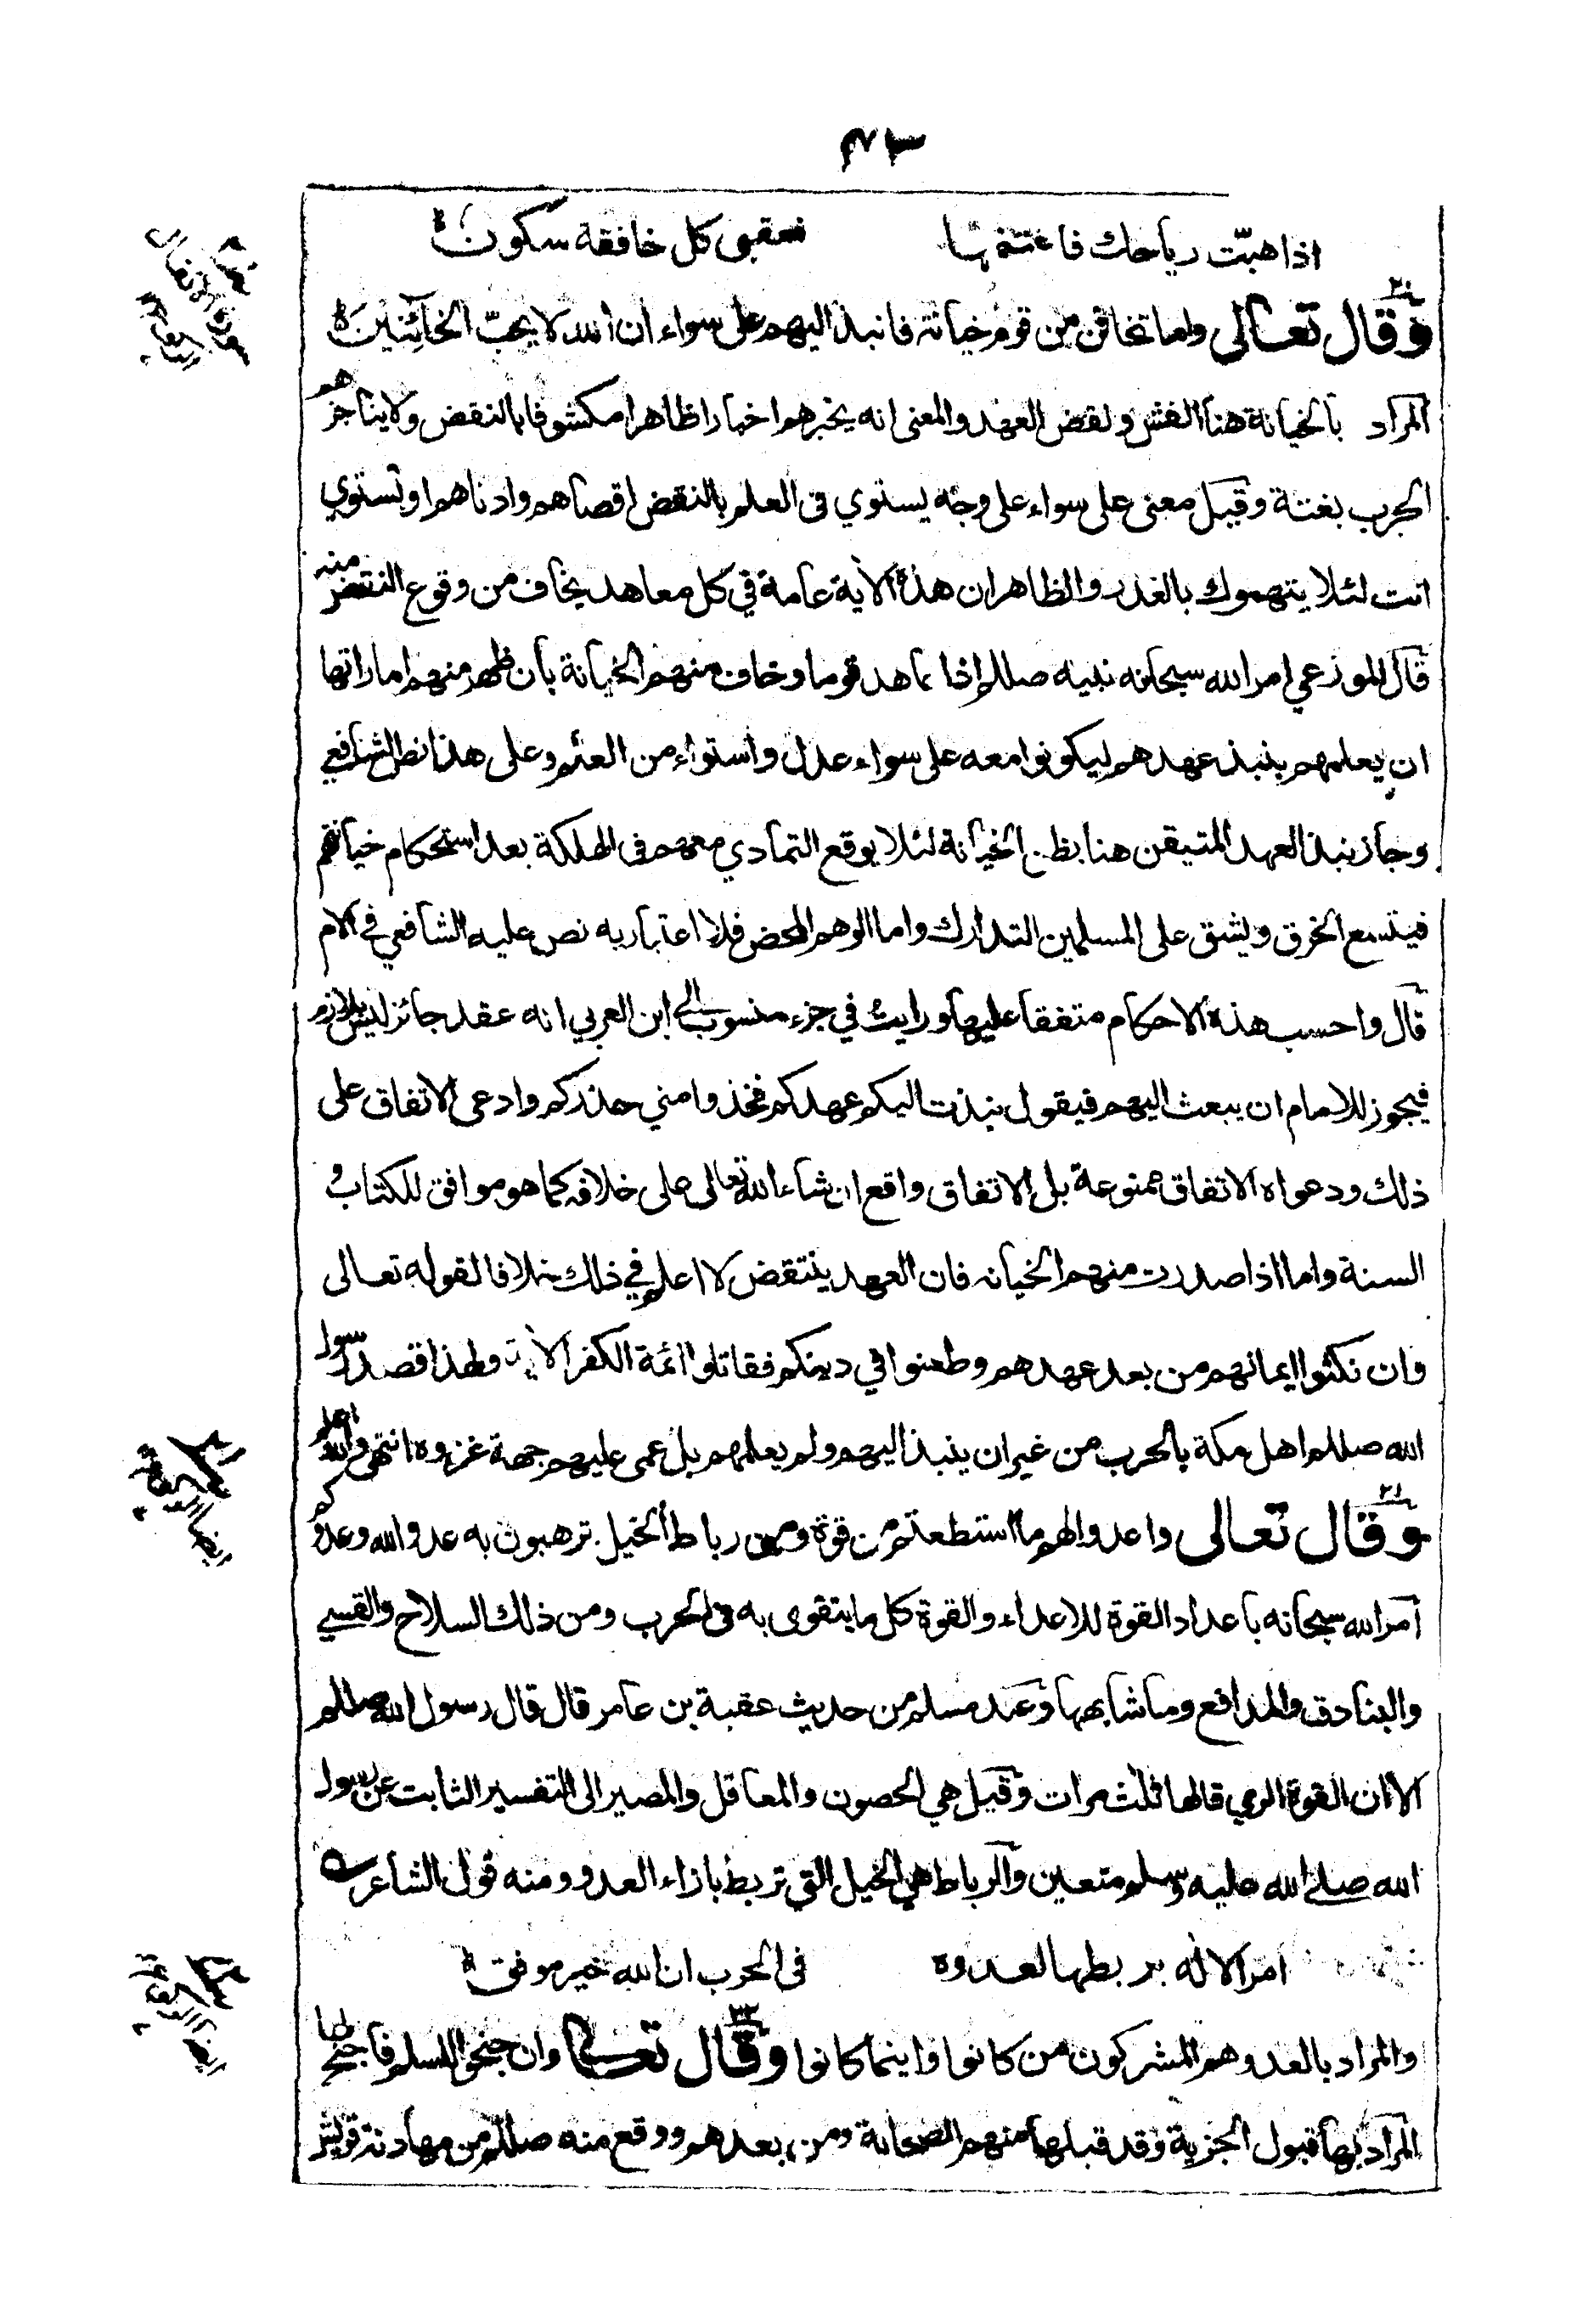 اذا هبّت رياحك فاغتنمها فعقبى كل خافقة سكون
وقال تعالى واما تخافن من قوم خيانة فانبذ اليهم على سواء ان الله لا يحبّ الخائنين
المراد بالخيانة هنا الغش ونقض العهد والمعنى انه يخبرهم اخبارا ظاهرا مكشوفا بالنقض ولا يناجزهم
الحرب بغتة وقيل معنى على سواء على وجه يستوي في العلم بالنقض اقصاهم وادناهم او تستوي
انت لئلا يتهموك بالغدر والظاهر ان هذه الاية عامة في كل معاهد يخاف من وقوع النقض منه
قال الموزعي امر الله سبحانه نبيه صللم اذا عاهد قوما وخاف منهم الخيانة بان ظهر منهم اماراتها
ان يعلمهم بنبذ عهدهم ليكونوا معه على سواء عدل واستواء من العلم وعلى هذا نص الشافعي
وجاز نبذ العهد المتيقن هنا بظن الخيانة لئلا يوقع التمادي معهم في الهلكة بعد استحكام خيانتهم
فيتسع الخرق ويشق على المسلمين التدارك واما الوهم المحض فلا اعتبار به نص عليه الشافعي في الام
قال واحسب هذه الاحكام متفقا عليها ورايت في جزء منسوب الى ابن العربي انه عقد جائز ليس بلازم
فيجوز للامام ان يبعث اليهم فيقول نبذت اليكم عهدكم فخذوا مني حذركم وادعى الاتفاق على
ذلك ودعواه الاتفاق ممنوعة بل الاتفاق واقع ان شاء الله تعالى على خلافه كما هو موافق للكتاب و
السنة واما اذا صدرت منهم الخيانه فان العهد ينتقض لا اعلم في ذلك خلافا لقوله تعالى
وان نكثوا ايمانهم من بعد عهدهم وطعنوا في دينكم فقاتلوا ائمة الكفر الاية ولهذا قصد رسول
الله صللم اهل مكة بالحرب من غير ان ينبذ اليهم ولم يعلمهم بل عمى عليهم جهة غزوه انتهى والله اعلم
وقال تعالى واعدوا لهم ما استطعتم من قوة ومن رباط الخيل ترهبون به عدو الله وعدوكم
امر الله سبحانه باعداد القوة للاعداء والقوة كل ما يتقوى به في الحرب ومن ذلك السلاح والقسي
والبنادق والمدافع وما شابهها وعند مسلم من حديث عقبة بن عامر قال قال رسول الله صللم
الا ان القوة الرمي قالها ثلث مرات وقيل هي الحصون والمعاقل والمصير الى التفسير الثابت عن رسول
الله صلى الله عليه وسلم متعين والرباط هي الخيل التي تربط بازاء العدو ومنه قول الشاعر
امر الاله بربطها لعدوه في الحرب ان الله خير موفق
والمراد بالعدو هم المشركون من كانوا واينما كانوا وقال تعالى وان جنحوا للسلم فاجنح لها
المراد بها قبول الجزية وقد قبلها منهم الصحابة ومن بعدهم ووقع منه صللم من مهادنة قريش